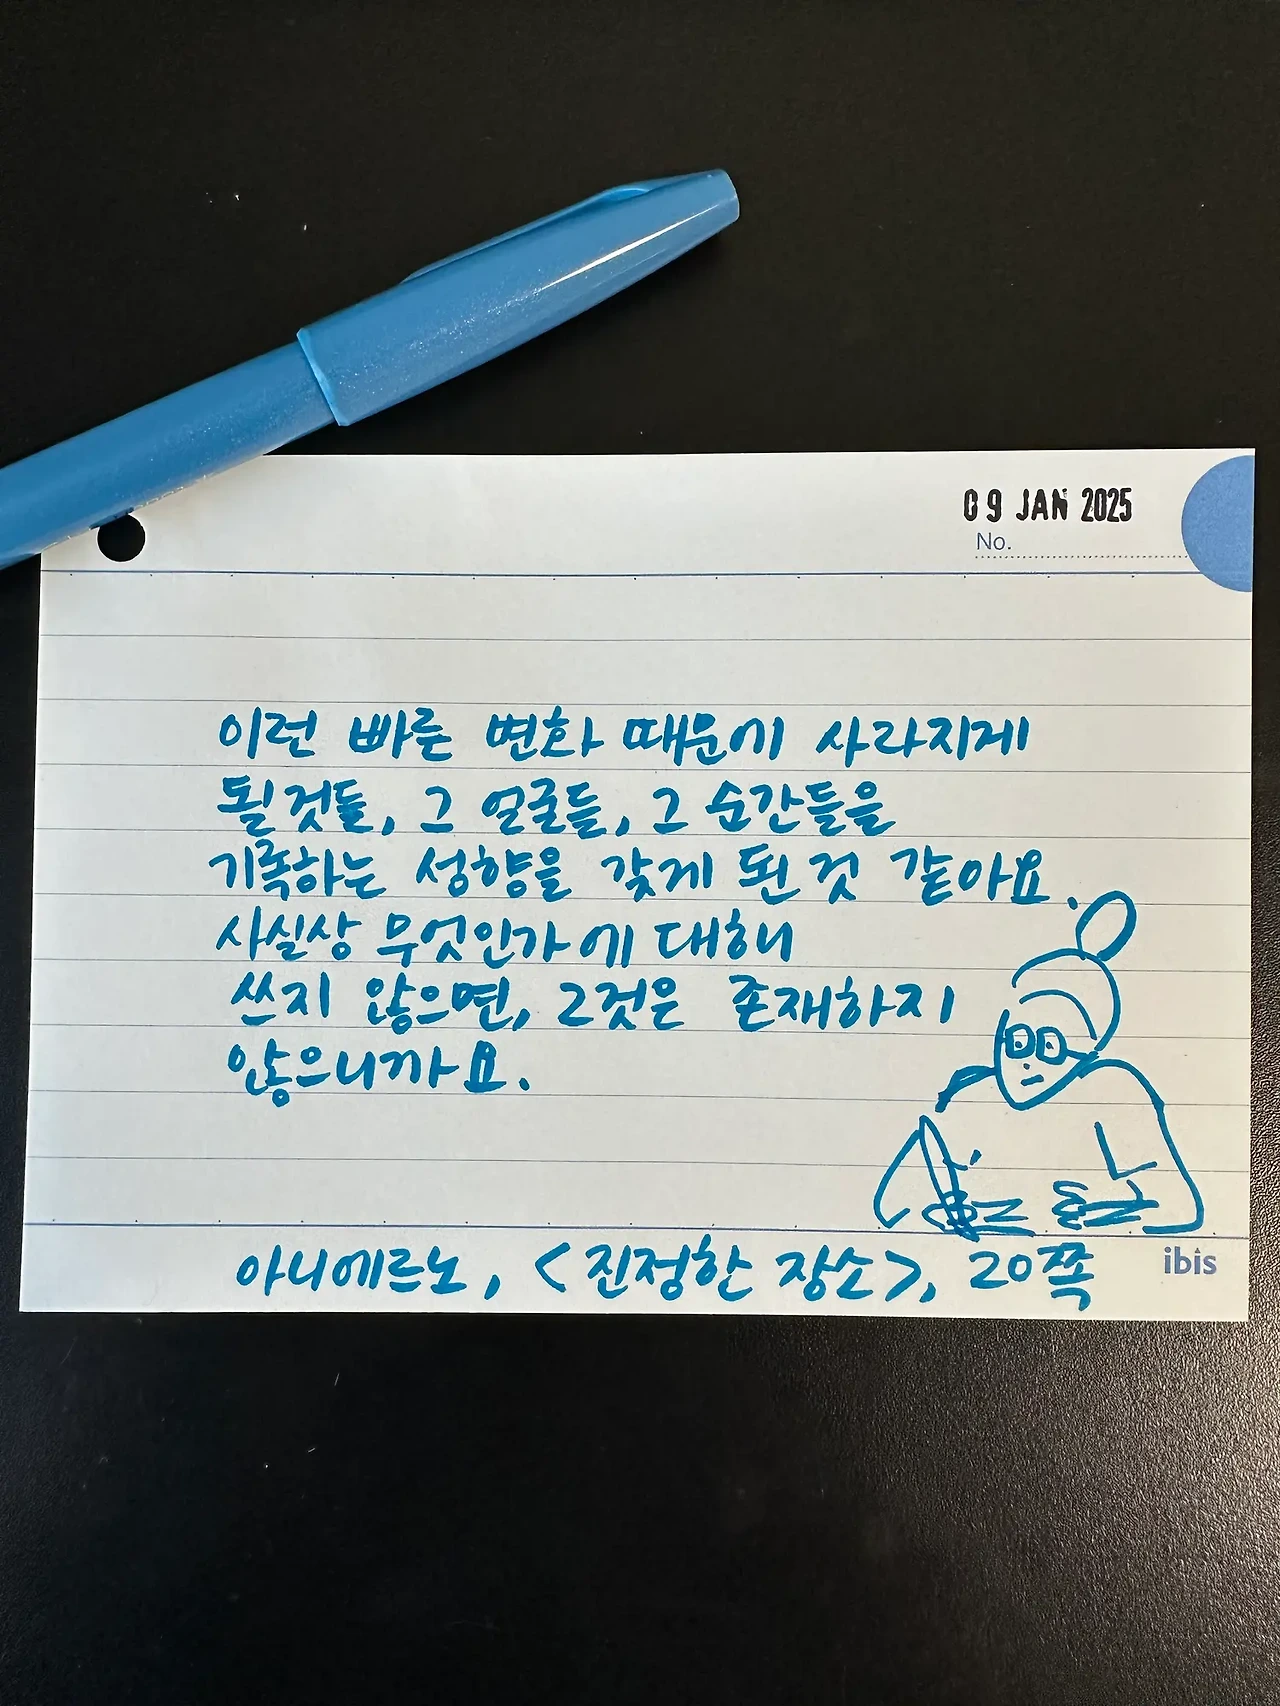 09 JAN 2025
No.
이런 빠른 변화 때문에 사라지게
될것들, 그 얼굴들, 그 순간들을
기록하는 성향을 갖게 된 것 같아요.
사실상 무엇인가에 대해
쓰지 않으면, 그것은 존재하지
않으니까요.
아니에르노, <진정한 장소>, 20쪽
ibis